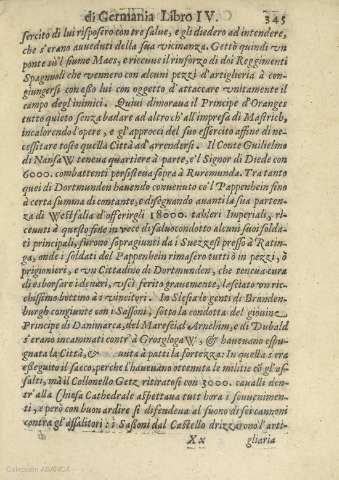 di Germania Libro IV. 345
sercito di lui risposero con tre salue, e gli diedero ad intendere,
che s'erano auueduti della sua vicinanza. Gettò quindi vn
ponte sù'l fiume Maes, e riceuè il rinforzo di doi Reggimenti
Spagnuoli che vennero con alcuni pezzi d'artiglieria à con-
giungersi con esso lui con oggetto d'attaccare vnitamente il
campo degl'inimici. Quiui dimoraua il Principe d'Oranges
tutto quieto senza badare ad altro ch'all'impresa di Mastrich,
incalorendo l'opere, e gl'approcci del suo essercito affine di ne-
cessitare tosto quella Città ad'arrendersi. Il Conte Guglielmo
di NansaW teneua quartiere à parte, e'l Signor di Diede con
6000. combattenti persisteua sopra à Ruremunda. Tra tanto
quei di Dortmunden hauendo conuenuto co'l Pappenhein sino
à certa summa di contante, e disegnando auanti la sua parten-
za di Westfalia d'offerirgli 18000. talleri Imperiali, ri-
ceuuti à questo fine in vece di saluocondotto alcuni suoi solda-
ti principali, furono sopragiunti da i Suezzesi presso à Ratin-
ga, onde i soldati del Pappenhein rimasero tutti ò in pezzi, ò
prigionieri, e vn Cittadino di Dortmunden, che teneua cura
di esborsare i deneri, vscì ferito grauemente, lasciato vn ric-
chissimo bottino à i vincitori. In Slesia le genti di Branden-
burgh congiunte con i Sassoni, sotto la condotta del giouine
Principe di Danimarca, del Marescial Arnheim, e di Dubald
s'erano incaminati contr'à GrosglogaW, & haueuano espug-
nata la Città, & unta à patti la fortezza: In quella s'era
esseguito il sacco, perche l'haueuano ottenuta le militie co gl'as-
salti, mà il Collonello Getz ritiratosi con 3000. caualli den-
tr'alla Chiesa Cathedrale aspettaua tutt'hora i souuenimen-
ti, e però con buon ardire si difendeua al suono di sei cannoni
contra gl'assalitori: i Sassoni dal Castello drizzarono l'arti-
Xx gliaria
Colección ABANCA